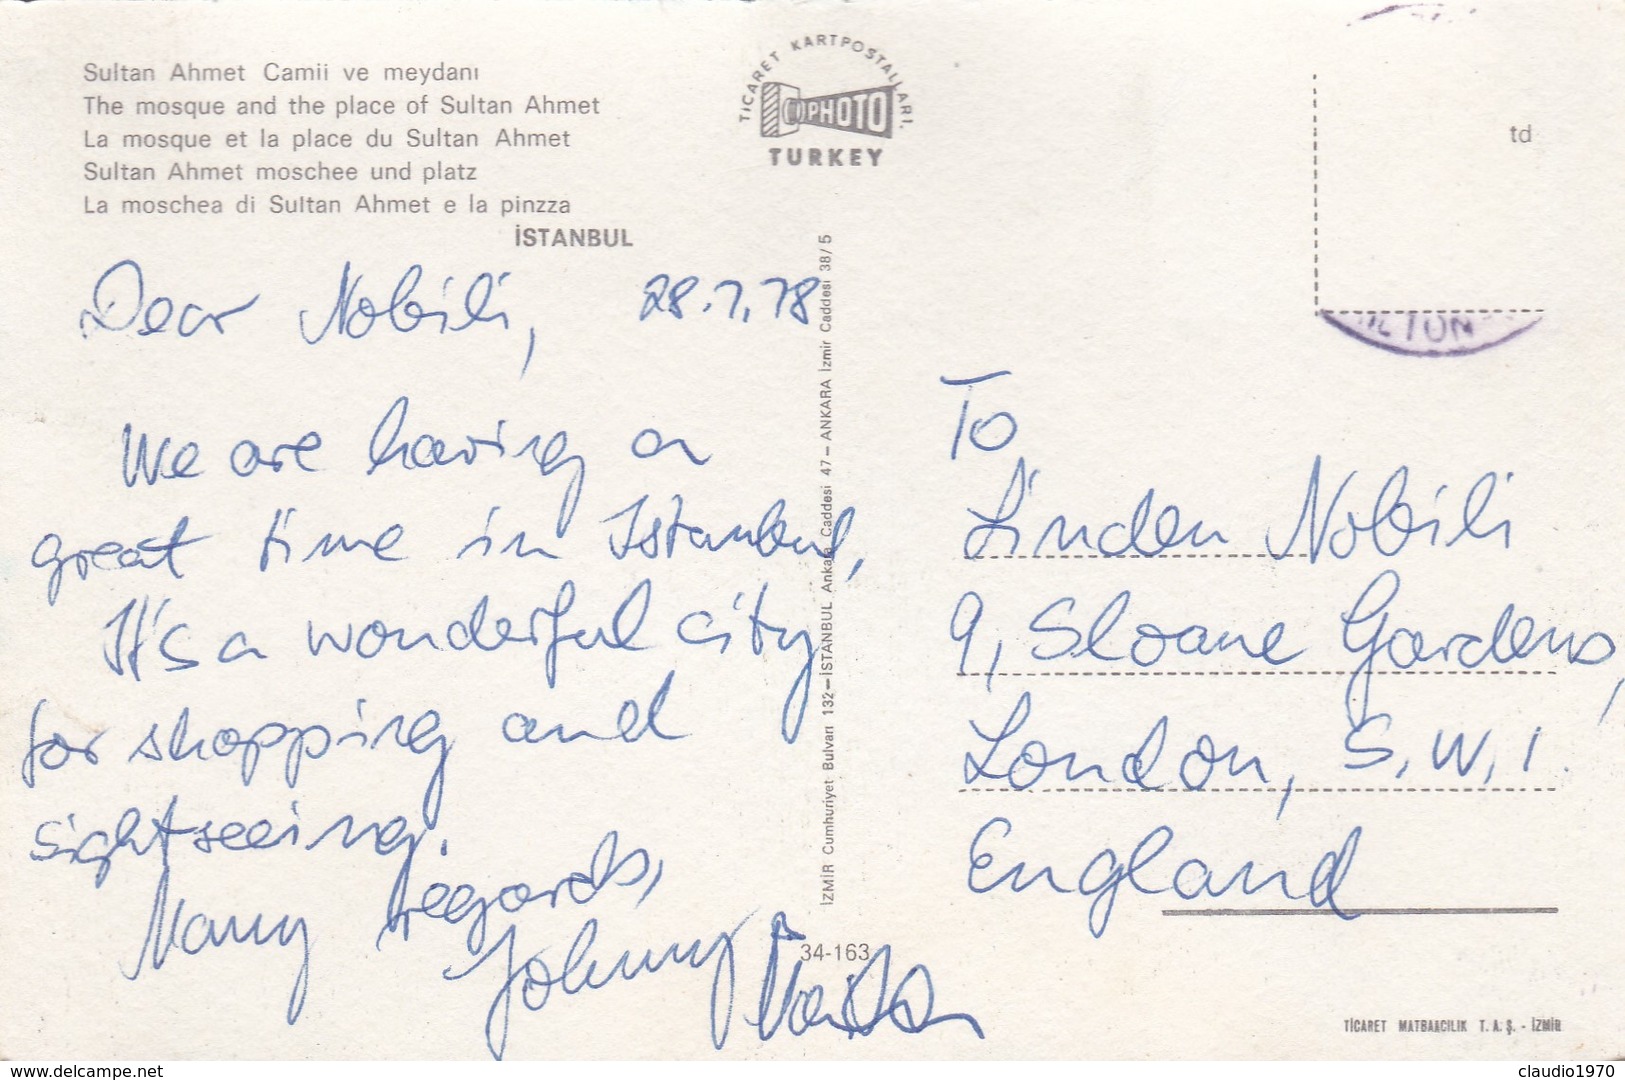 Sultan Ahmet Camii ve meydanı
The mosque and the place of Sultan Ahmet
La mosque et la place du Sultan Ahmet
Sultan Ahmet moschee und platz
La moschea di Sultan Ahmet e la pinzza
İSTANBUL
TICARET KARTPOSTALLARI.
PHOTO
TURKEY
td
Dear Nobili, 28.7.78
We are having a
great time in Istanbul,
It's a wonderful city
for shopping and
sightseeing.
Many regards,
Johnny
To
Linden Nobili
9, Sloane Gardens,
London, S.W.1.
England
İZMİR Cumhuriyet Bulvarı 132—İSTANBUL Ankara Caddesi 47—ANKARA İzmir Caddesi 38/5
34-163
TİCARET MATBAACILIK T.A.Ş. - İZMİR
www.delcampe.net
claudio1970